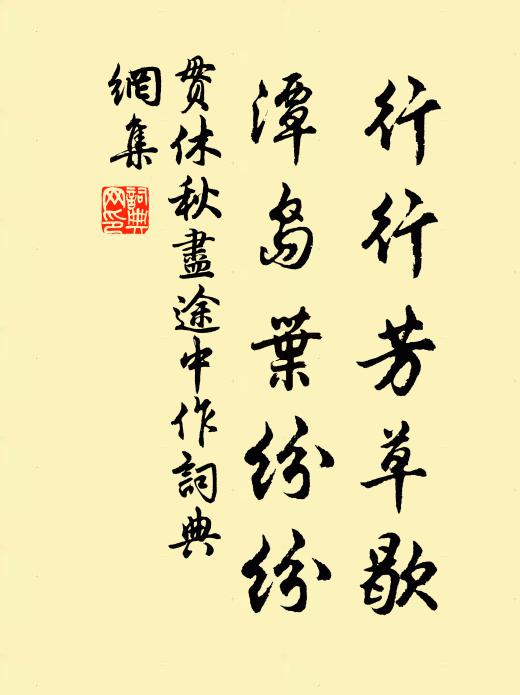 行行芳草歇
潭島葉紛紛
貫休秋盡途中作詞典
網集
詞典
网印